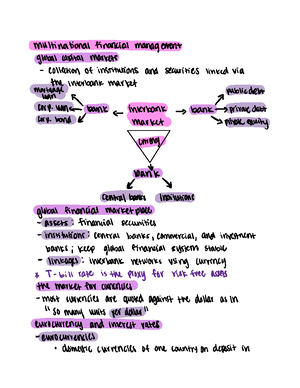 multinational financial management
global capital markets
- collection of institutions and securities linked via
the interbank market
mortgage loan
corp. loan
corp. bond
bank
interbank market
bank
public debt
private debt
private equity
currency
bank
central banks
institutions
global financial marketplace
- assets: financial securities
- institutions: central banks, commercial, and investment
banks; keep global financial system stable
- linkages: interbank networks using currency
* T-bill rate is the proxy for risk free assets
the market for currencies
- most currencies are quoted against the dollar as in
"so many units per dollar"
eurocurrency and interest rates
- eurocurrencies
• domestic currencies of one country on deposit in